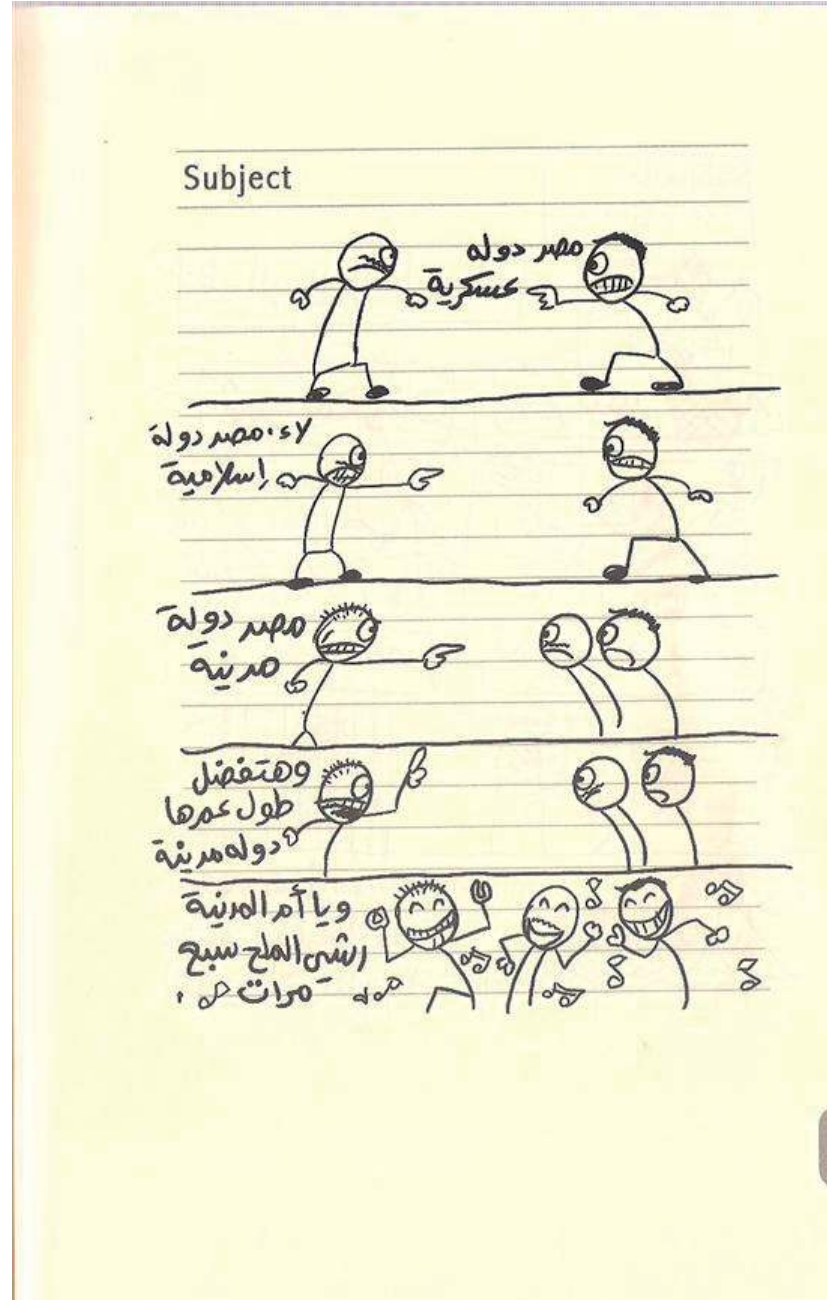 Subject
مصر دوله
عسكرية
لاء، مصر دولة
إسلامية
مصر دولة
مدنية
وهتفضل
طول عمرها
دوله مدينة
ويا أم المدنية
رشي الملح سبع
مرات